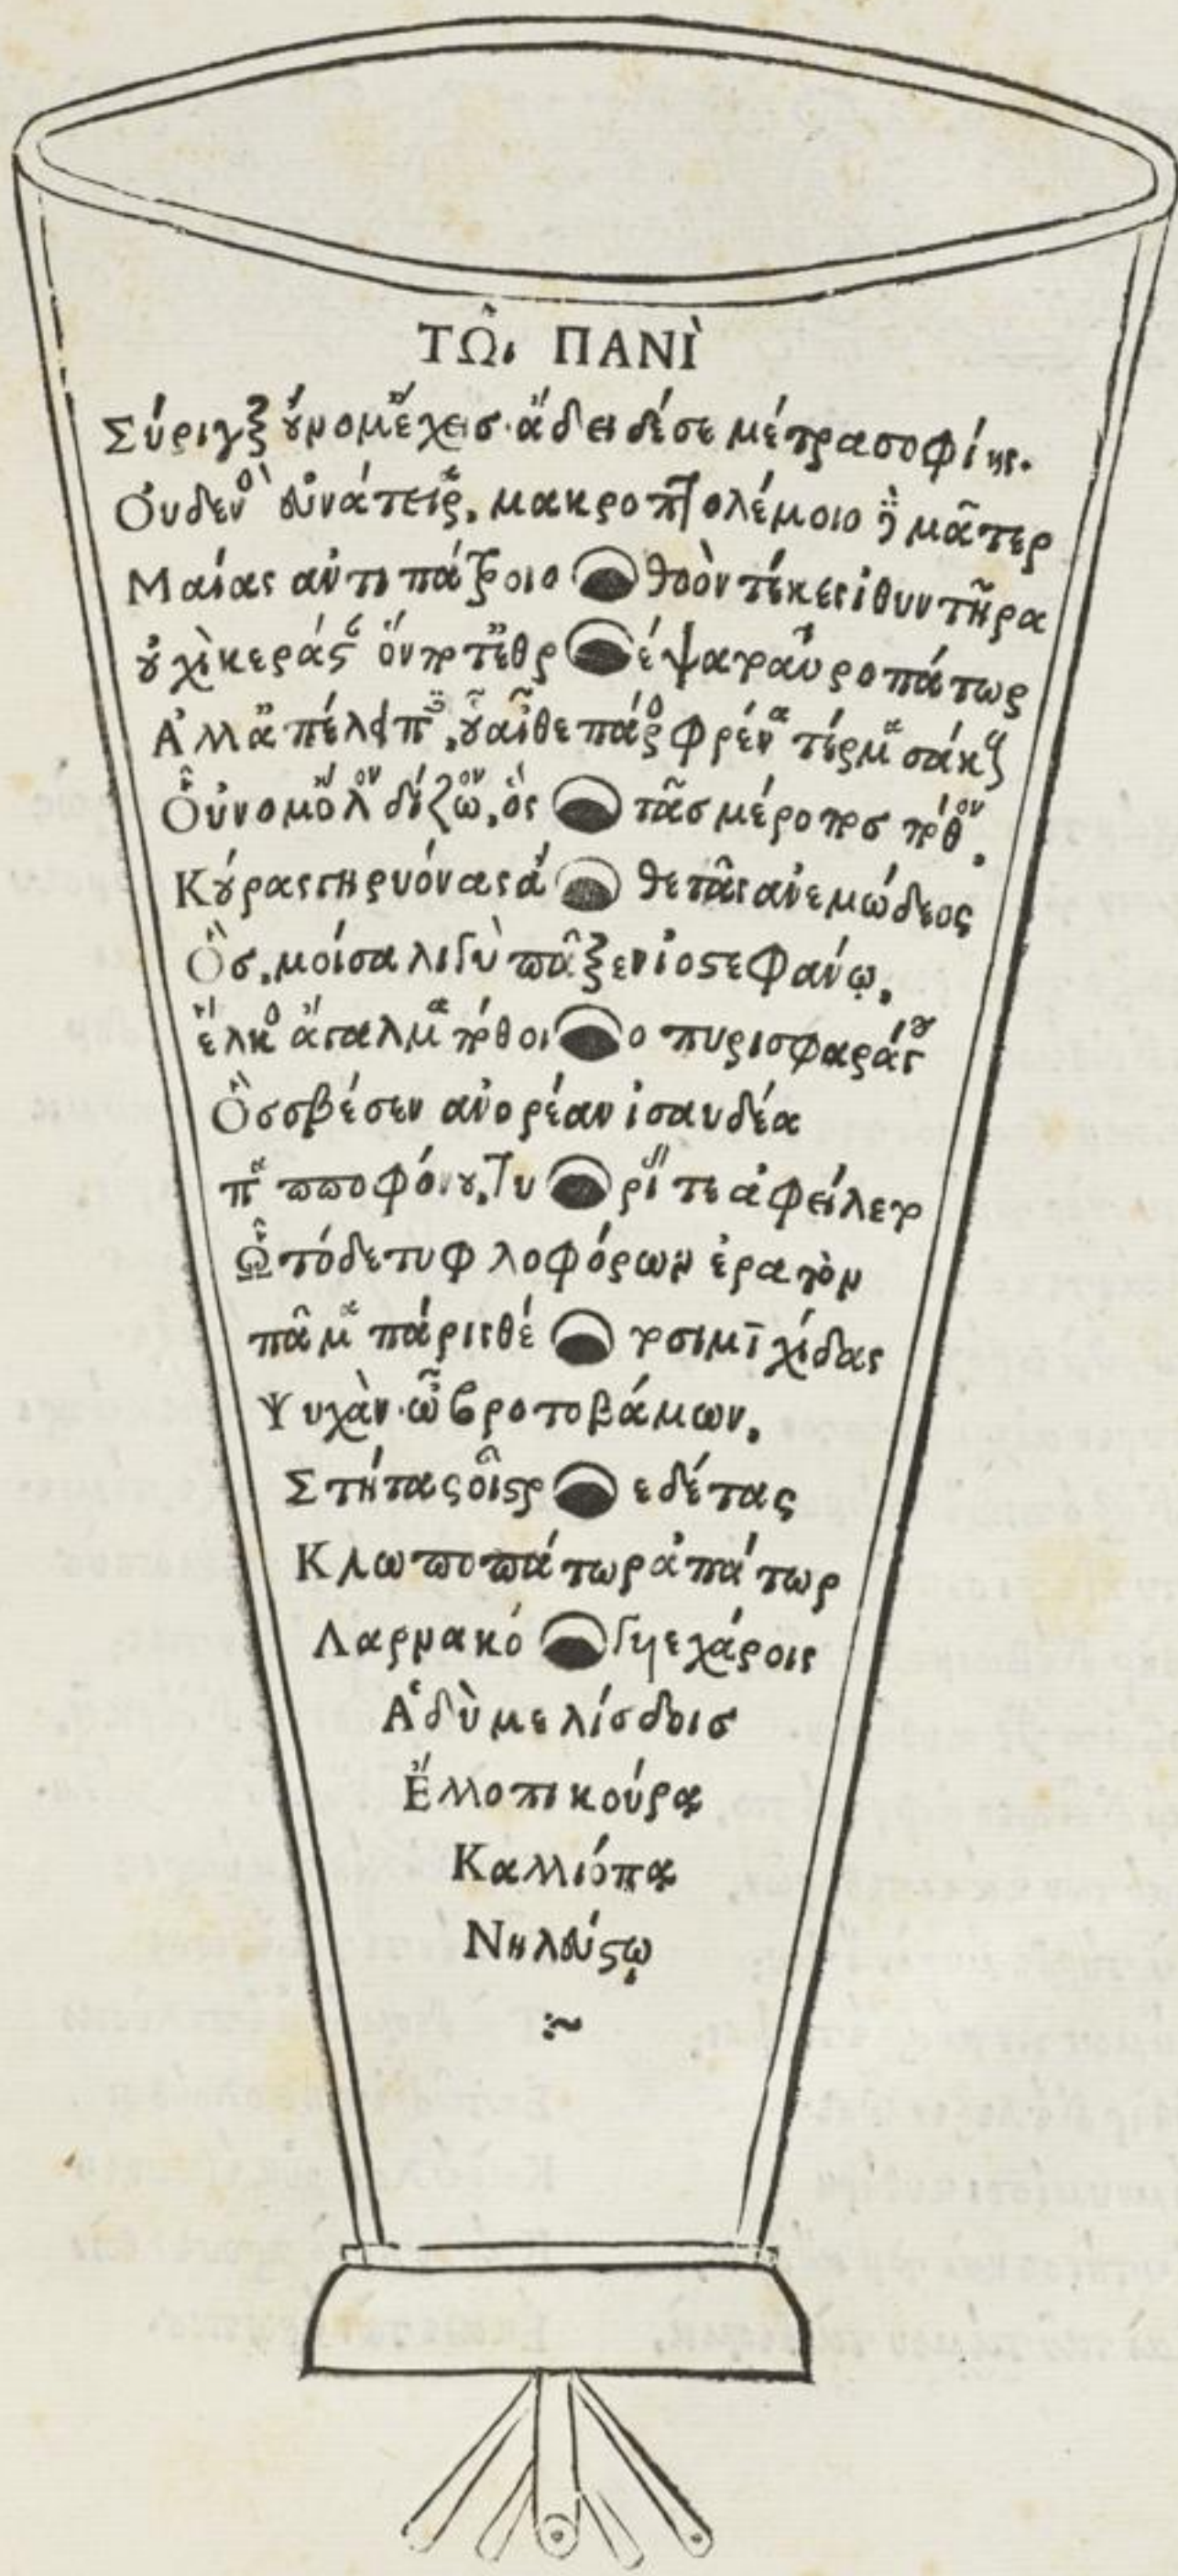 ΤΩ͂ι ΠΑΝῚ
Σύριγξ οὔνομ᾽ ἔχεισ· ἄδει δέ σε μέτρα σοφίης.
Οὐδενὸ εὐνάτειρα, μακροπτολέμοιο δὲ μᾶτερ
Μαίας ἀντιπάτροιο θοὸν τέκες ἰθυντῆρα
οὐχὶ κεράστ ὅν ποτ᾽ ἔθρέψατο ταυροπάτωρ
Ἀλλ᾽ ἃ πέλει αἶθε πάρος φρένα τέρμα σάκους
Οὔνομ᾽ ὅλον δίζωον, ὃς τᾶσ μέροποσ πόθον.
Κούρας γηρυόνας ἀθε τᾶς ἀνεμώδεος
Ὃσ, μοίσα λιγὺ πᾶξεν ἰοστεφάνῳ,
ἕλκος ἄγαλμα πόθοιο πυρισφαράγου
Ὃσ σβέσεν ἀνορέαν ἰσαυδέα
παπποφόνου, Τυρίην τε ἀφείλετο
Ὧ τόδε τυφλοφόρων ἐρατὸν
πᾶμα πάρις θέτο σιμιχίδας
Ψυχὰν· ὦ βροτοβάμων,
Στήτας οἶστρε δέτας
Κλωποπάτωρ ἀπάτωρ
Λαρνακόγυιε χάροις
Ἁδὺ μελίσδοισ
Ἔλλοπι κούρᾳ
Καλλιόπᾳ
Νηλεύστῳ